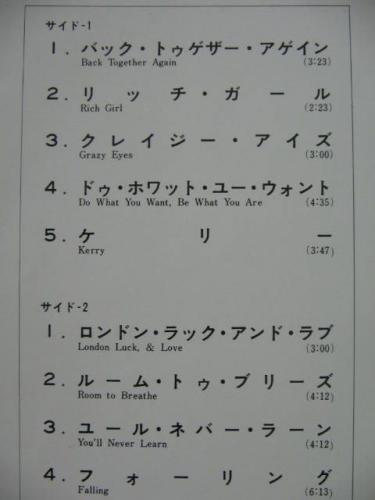 サイド-1
1. バック・トゥゲザー・アゲイン
Back Together Again (3:23)
2. リッチ・ガール
Rich Girl (2:23)
3. クレイジー・アイズ
Grazy Eyes (3:00)
4. ドゥ・ホワット・ユー・ウォント
Do What You Want, Be What You Are (4:35)
5. ケリー
Kerry (3:47)
サイド-2
1. ロンドン・ラック・アンド・ラブ
London Luck, & Love (3:00)
2. ルーム・トゥ・ブリーズ
Room to Breathe (4:12)
3. ユール・ネバー・ラーン
You'll Never Learn (4:12)
4. フォーリング
Falling (6:13)